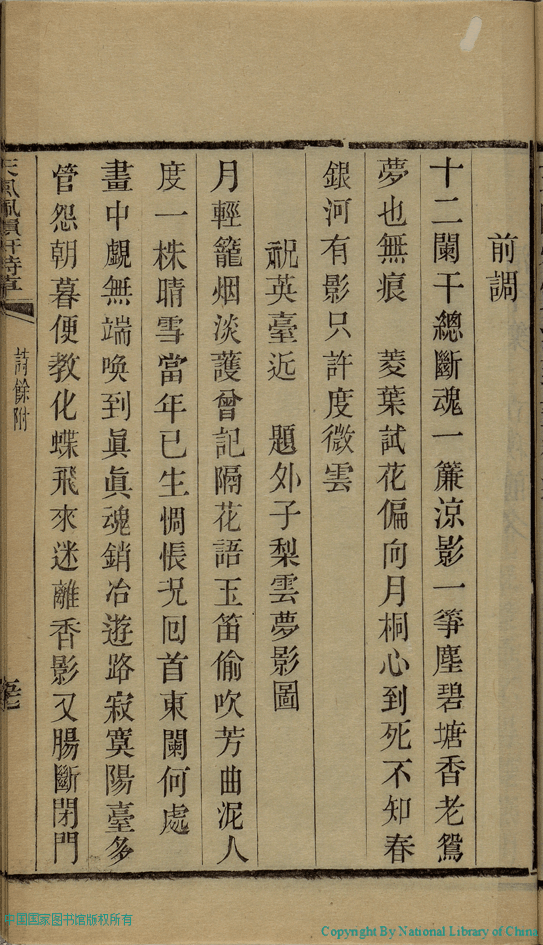 前調
十二闌干總斷魂一簾涼影一箏塵碧塘香老鴛
夢也無痕　菱葉試花偏向月桐心到死不知春
銀河有影只許度微雲
祝英臺近　題外子梨雲夢影圖
月輕籠烟淡護曾記隔花語玉笛偷吹芳曲泥人
度一株晴雪當年已生惆悵况囘首東闌何處
畫中覷無端喚到眞眞魂銷冶遊路寂寞陽臺多
管怨朝暮便教化蝶飛來迷離香影又腸斷閉門
詩餘附
中国国家图书馆版权所有
Copyright By National Library of China